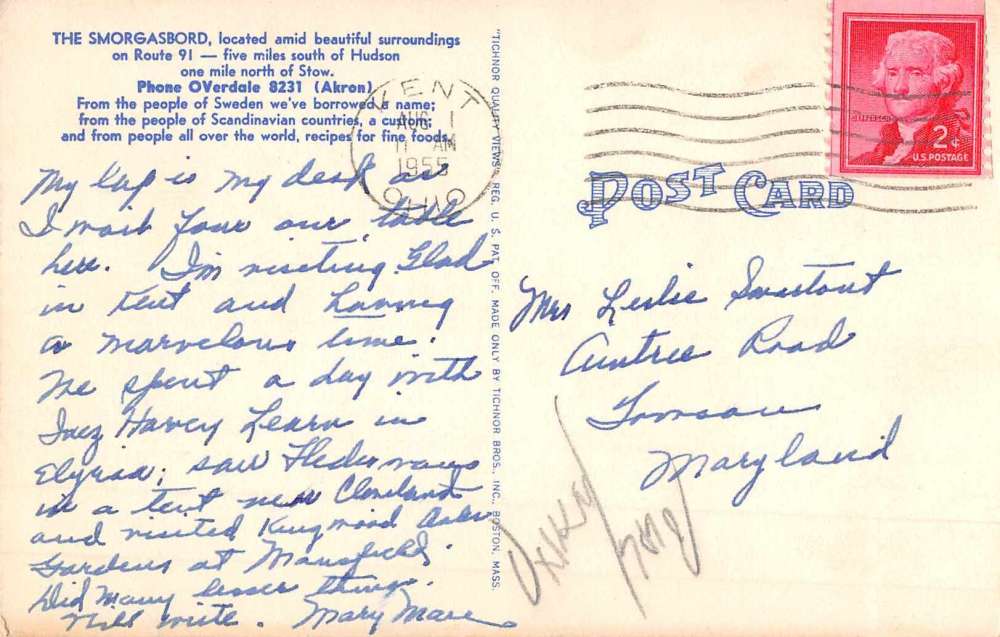 THE SMORGASBORD, located amid beautiful surroundings
on Route 91 — five miles south of Hudson
one mile north of Stow.
Phone OVerdale 8231 (Akron)
From the people of Sweden we've borrowed a name;
from the people of Scandinavian countries, a custom;
and from people all over the world, recipes for fine foods.
KENT
AUG 1
11 AM
1955
OHIO
My lap is my desk as
I wait for our table
here. I'm visiting Glad
in Kent and having
a marvelous time.
We spent a day with
Inez Harvey Learn in
Elyria; saw
in a tent near Cleveland
and visited Kingwood
Gardens at Mansfield.
Did many lesser things.
Will write. Mary
"TICHNOR QUALITY VIEWS," REG. U. S. PAT. OFF. MADE ONLY BY TICHNOR BROS., INC., BOSTON, MASS.
2¢
U.S. POSTAGE
POST CARD
Mrs Leslie
Road
Towson
Maryland